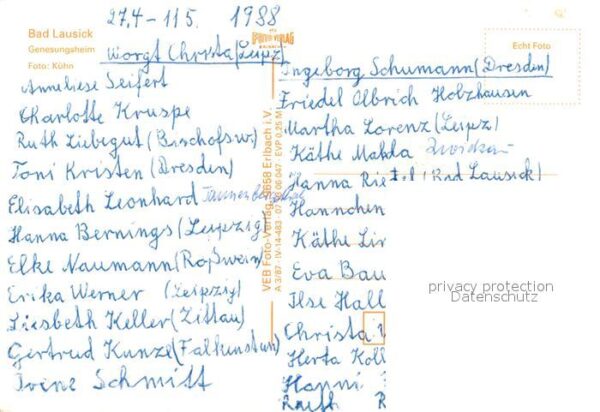 27.4 - 11.5. 1988
Bad Lausick
Genesungsheim
Foto: Kühn
Worgt Christa (Leipz)
Anneliese Seifert
Charlotte Kruspe
Ruth Liebegut (Bischofsw)
Toni Kristen (Dresden)
Elisabeth Leonhard
Hanna Bernings (Leipzig)
Elke Naumann (Roßwein)
Erika Werner (Leipzig)
Liesbeth Keller (Zittau)
Gertrud Kunze (Falkenstein)
Irene Schmitt
VEB Foto-Verlag, 9658 Erlbach i.V.
A 3/87 IV-14-483 07 06 047 EVP 0,25 M
Echt Foto
Ingeborg Schumann (Dresden)
Friedel Olbrich Holzhausen
Martha Lorenz (Leipz)
Käthe Mahda Zwickau
Hanna Rie tel (Bad Lausick)
Hannchen
Käthe Lin
Eva Bau
Ilse Hall
Christa
Herta Koll
Hanni
Ruth R
privacy protection
Datenschutz